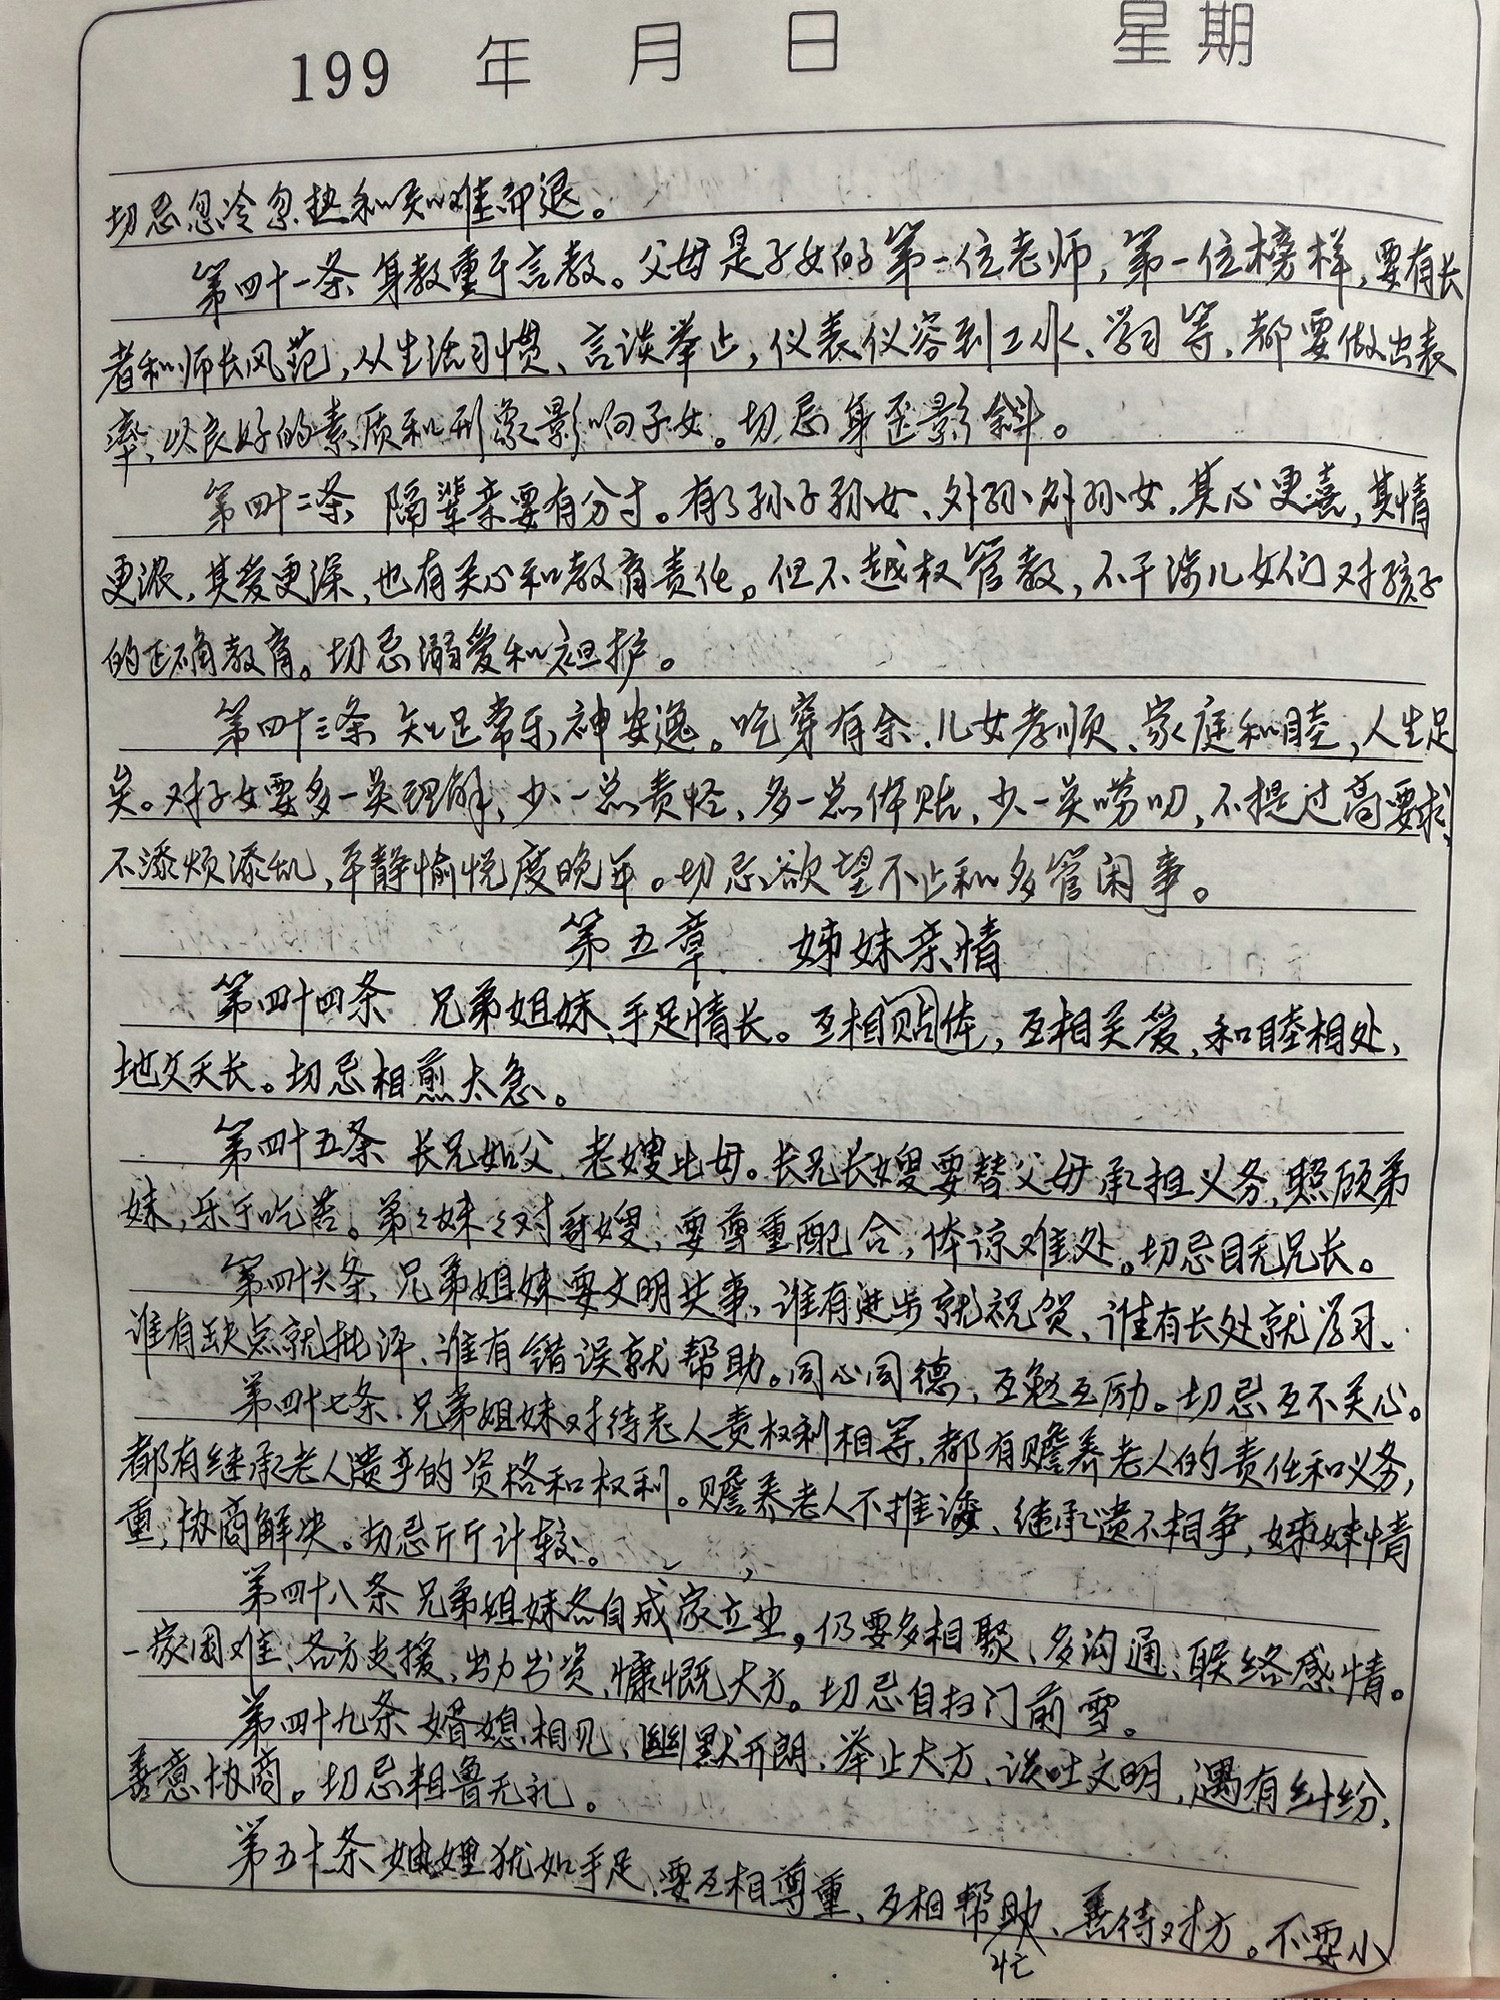 199 年 月 日 星期
切忌忽冷忽热和知难却退。
第四十一条 身教重于言教。父母是子女的第一位老师，第一位榜样，要有长
者和师长风范，从生活习惯、言谈举止，仪表仪容到工作、学习等，都要做出表
率，以良好的素质和形象影响子女。切忌身歪影斜。
第四十二条 隔辈亲要有分寸。有了孙子孙女、外孙外孙女，其心更喜，其情
更浓，其爱更深，也有关心和教育责任。但不越权管教，不干涉儿女们对孩子
的正确教育。切忌溺爱和袒护。
第四十三条 知足常乐，神安逸。吃穿有余、儿女孝顺、家庭和睦，人生足
矣。对子女要多一点理解，少一点责怪，多一点体贴，少一点唠叨，不提过高要求，
不添烦添乱，平静愉悦度晚年。切忌欲望不止和多管闲事。
第五章 姊妹亲情
第四十四条 兄弟姐妹、手足情长。互相贴体，互相关爱、和睦相处，
地久天长。切忌相煎太急。
第四十五条 长兄如父，老嫂比母。长兄长嫂要替父母承担义务，照顾弟
妹，乐于吃苦。弟弟妹妹对哥嫂，要尊重配合，体谅难处。切忌目无兄长。
第四十六条 兄弟姐妹要文明共事，谁有进步就祝贺、谁有长处就学习、
谁有缺点就批评、谁有错误就帮助。同心同德，互勉互励。切忌互不关心。
第四十七条 兄弟姐妹对待老人责权利相等，都有赡养老人的责任和义务，
都有继承老人遗产的资格和权利。赡养老人不推诿、继承遗不相争，姊妹情
重，协商解决。切忌斤斤计较。
第四十八条 兄弟姐妹各自成家立业，仍要多相聚、多沟通、联络感情。
一家困难、各方支援，出力出资，慷慨大方。切忌自扫门前雪。
第四十九条 婿媳相见、幽默开朗、举止大方、谈吐文明，遇有纠纷，
善意协商。切忌粗鲁无礼。
第五十条 妯娌犹如手足，要互相尊重、互相帮助、善待对方。不要小
忙